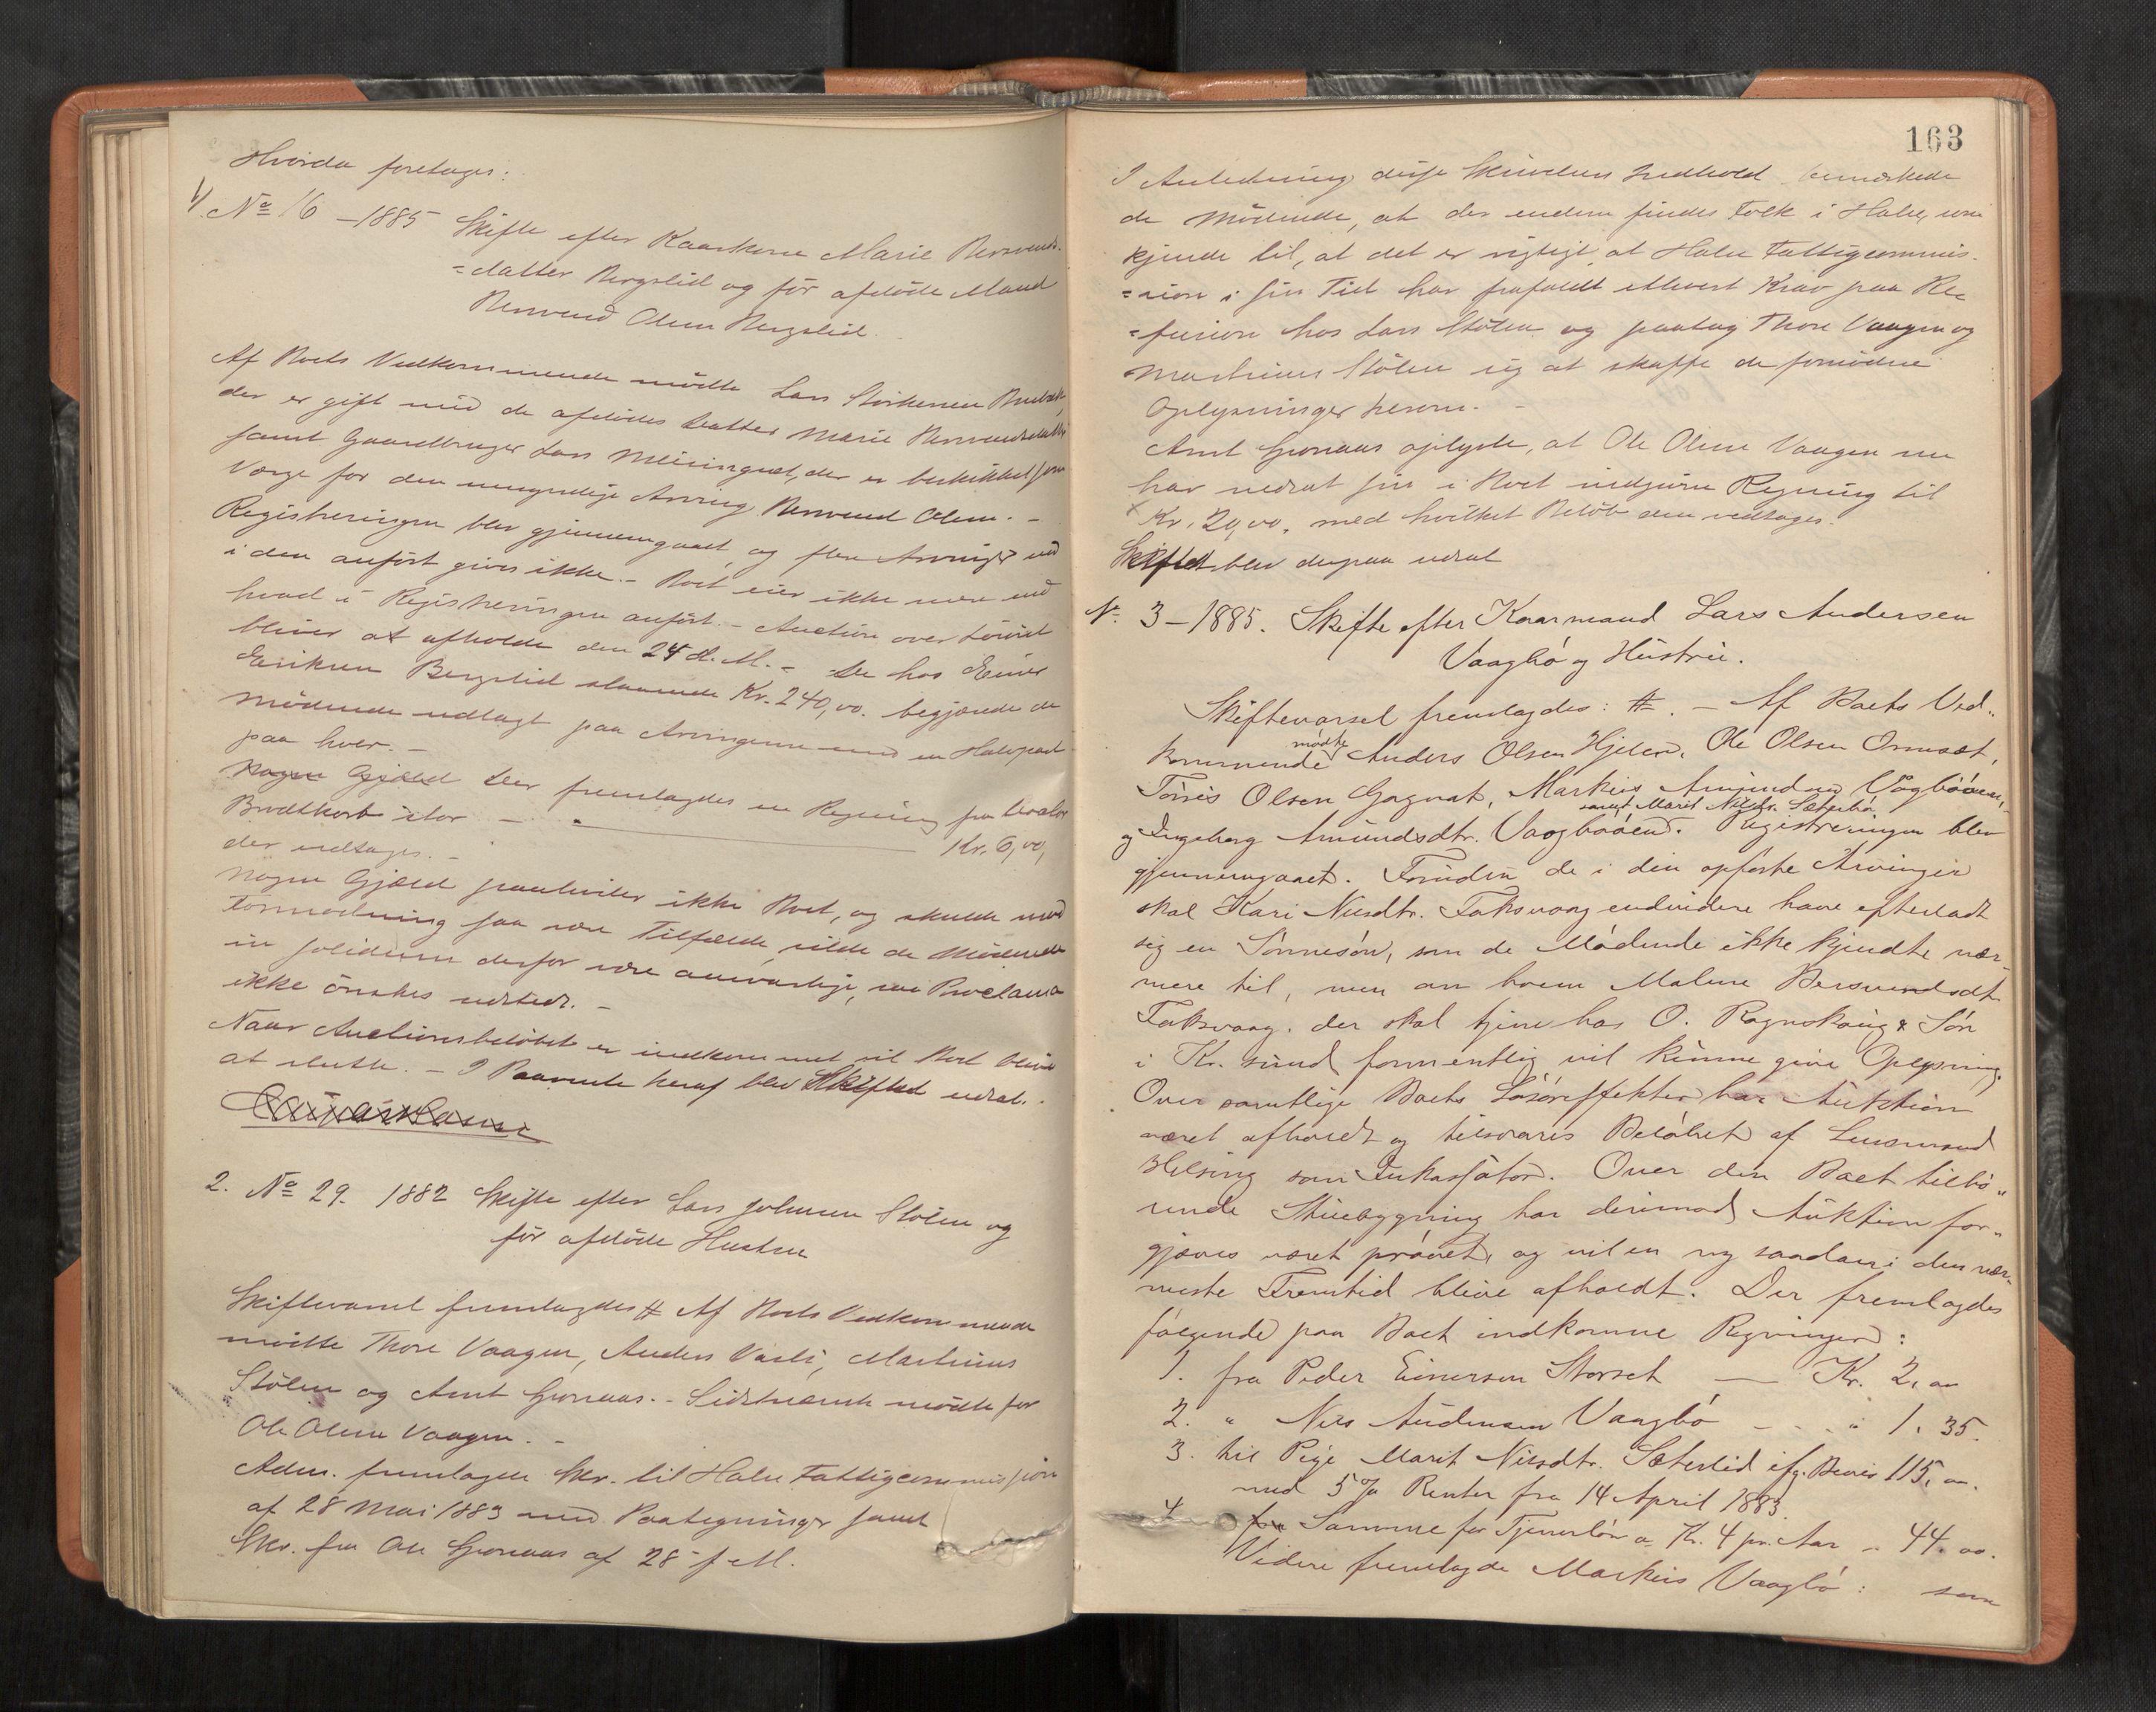 Hvorda foretages:
1/ No 16 - 1885 Skifte efter Kaarkone Marie Bersvends-
=datter Bergslid og før afdøde Mand
Bersvend Olsen Bergslid.
Af Boets Vedkommende mødte Lars Størkersen
der er gift med de afdødes Datter Marie Bersvendsdatter
samt Gaardbruger Lars der er beskikket som
Værge for den umyndige Arving Bersvend Olsen. -
Registreringen blev gjennemgaaet og flere Arvinger end
i den anført gives ikke. - Boet eier ikke mere end
hvad i Registreringen anført. - Auction over Løsøret
bliver at afholde den 24 d. M. - De hos Einer
Eriksen Bergslid staaende Kr. 240,00. begjærede de
Mødende udlagt paa Arvingerne med en Halvpart
paa hver. -
Nogen Gjæld Der fremlagdes en Regning fra Doctor
Brodtkorb stor - Kr. 6,00,
der vedtages. -
Nogen Gjæld paahviler ikke Boet, og skulde mod
Formodning saa være Tilfælde vilde de Mødende
in solidum derfor være ansvarlige, saa Proclama
ikke ønskes udstedt. -
Naar Auctionsbeløbet er indkommet vil Boet blive
at slutte. - I Paavente heraf blev Skiftet udsat.
2. No 29. 1882 Skifte efter Lars Johnsen Stølen og
før afdøde Hustru
Skiftevarsel fremlagdes # Af Boets Vedkommende
mødte Thore Vaagen, Anders Vasli, Martinus
Stølen og Arnt Gronaas. - Sidstnævnte mødte for
Ole Olsen Vaagen. -
Adm. fremlagde Skr. til Halse Fattigcommission
af 28 Mai 1883 med Paategninger samt
Skr. fra Ole Gronaas af 28 f. M.
163
I Anledning disse Skrivelsers Indhold bemærkede
de Mødende, at der endnu findes Folk i Halse, som
kjende til, at det er rigtigt at Halse Fattigcommis-
=sion i sin Tid har frafaldt ethvert Krav paa Re-
=fusion hos Lars Stølen og paatog Thore Vaagen og
Martinus Stølen sig at skaffe de fornødne
Oplysninger herom. -
Arnt Gronaas oplyste, at Ole Olsen Vaagen nu
har nedsat sin i Boet indgivne Regning til
Kr. 20,00, med hvilket Beløb den vedtages.
Skiftet blev derpaa udsat
No. 3 - 1885. Skifte efter Kaarmand Lars Andersen
Vaagbø og Hustru.
Skiftevarsel fremlagdes: #. - Af Boets Ved-
kommende mødte Anders Olsen Hjelen, Ole Olsen Ormset,
Tørris Olsen Gagnat, Markus Amundsen Vogbøøen,
samt Marit Nilsdr. Sæterbø
og Ingeborg Amundsdtr. Vaagbøøen. Registreringen blev
gjennemgaaet. Foruden de i den opførte Arvinger
skal Kari Nilsdtr. Taksvaag endvidere have efterladt
sig en Sønnesøn, som de Mødende ikke kjendte nær-
mere til, men om hvem Malene Bersvendsdtr.
Taksvaag, der skal tjene hos O. Rognskaug & Søn
i Kr. sund formentlig vil kunne give Oplysning.
Over samtlige Boets Løsøreffekter har Auktion
været afholdt og tilsvares Beløbet af Lensmand
Helsing som Inkassator. Over den Boet tilhø-
rende Stuebygning har derimod Auktion for-
gjæves været prøvet, og vil en ny saadan i den nær-
meste Fremtid blive afholdt. Der fremlagdes
følgende paa Boet indkomne Regninger:
1. fra Peder Einersen Storset - Kr. 2,00
2. " Nils Andersen Vaagbø - - " 1,35.
3. til Pige Marit Nilsdtr. Sæterlid ifg. Bevis 115,00.
med 5% Renter fra 14 April 1883.
4. for Samme for Tjenerløn a Kr. 4 pr. Aar - 44,00.
Videre fremlagde Markus Vaagbø: som